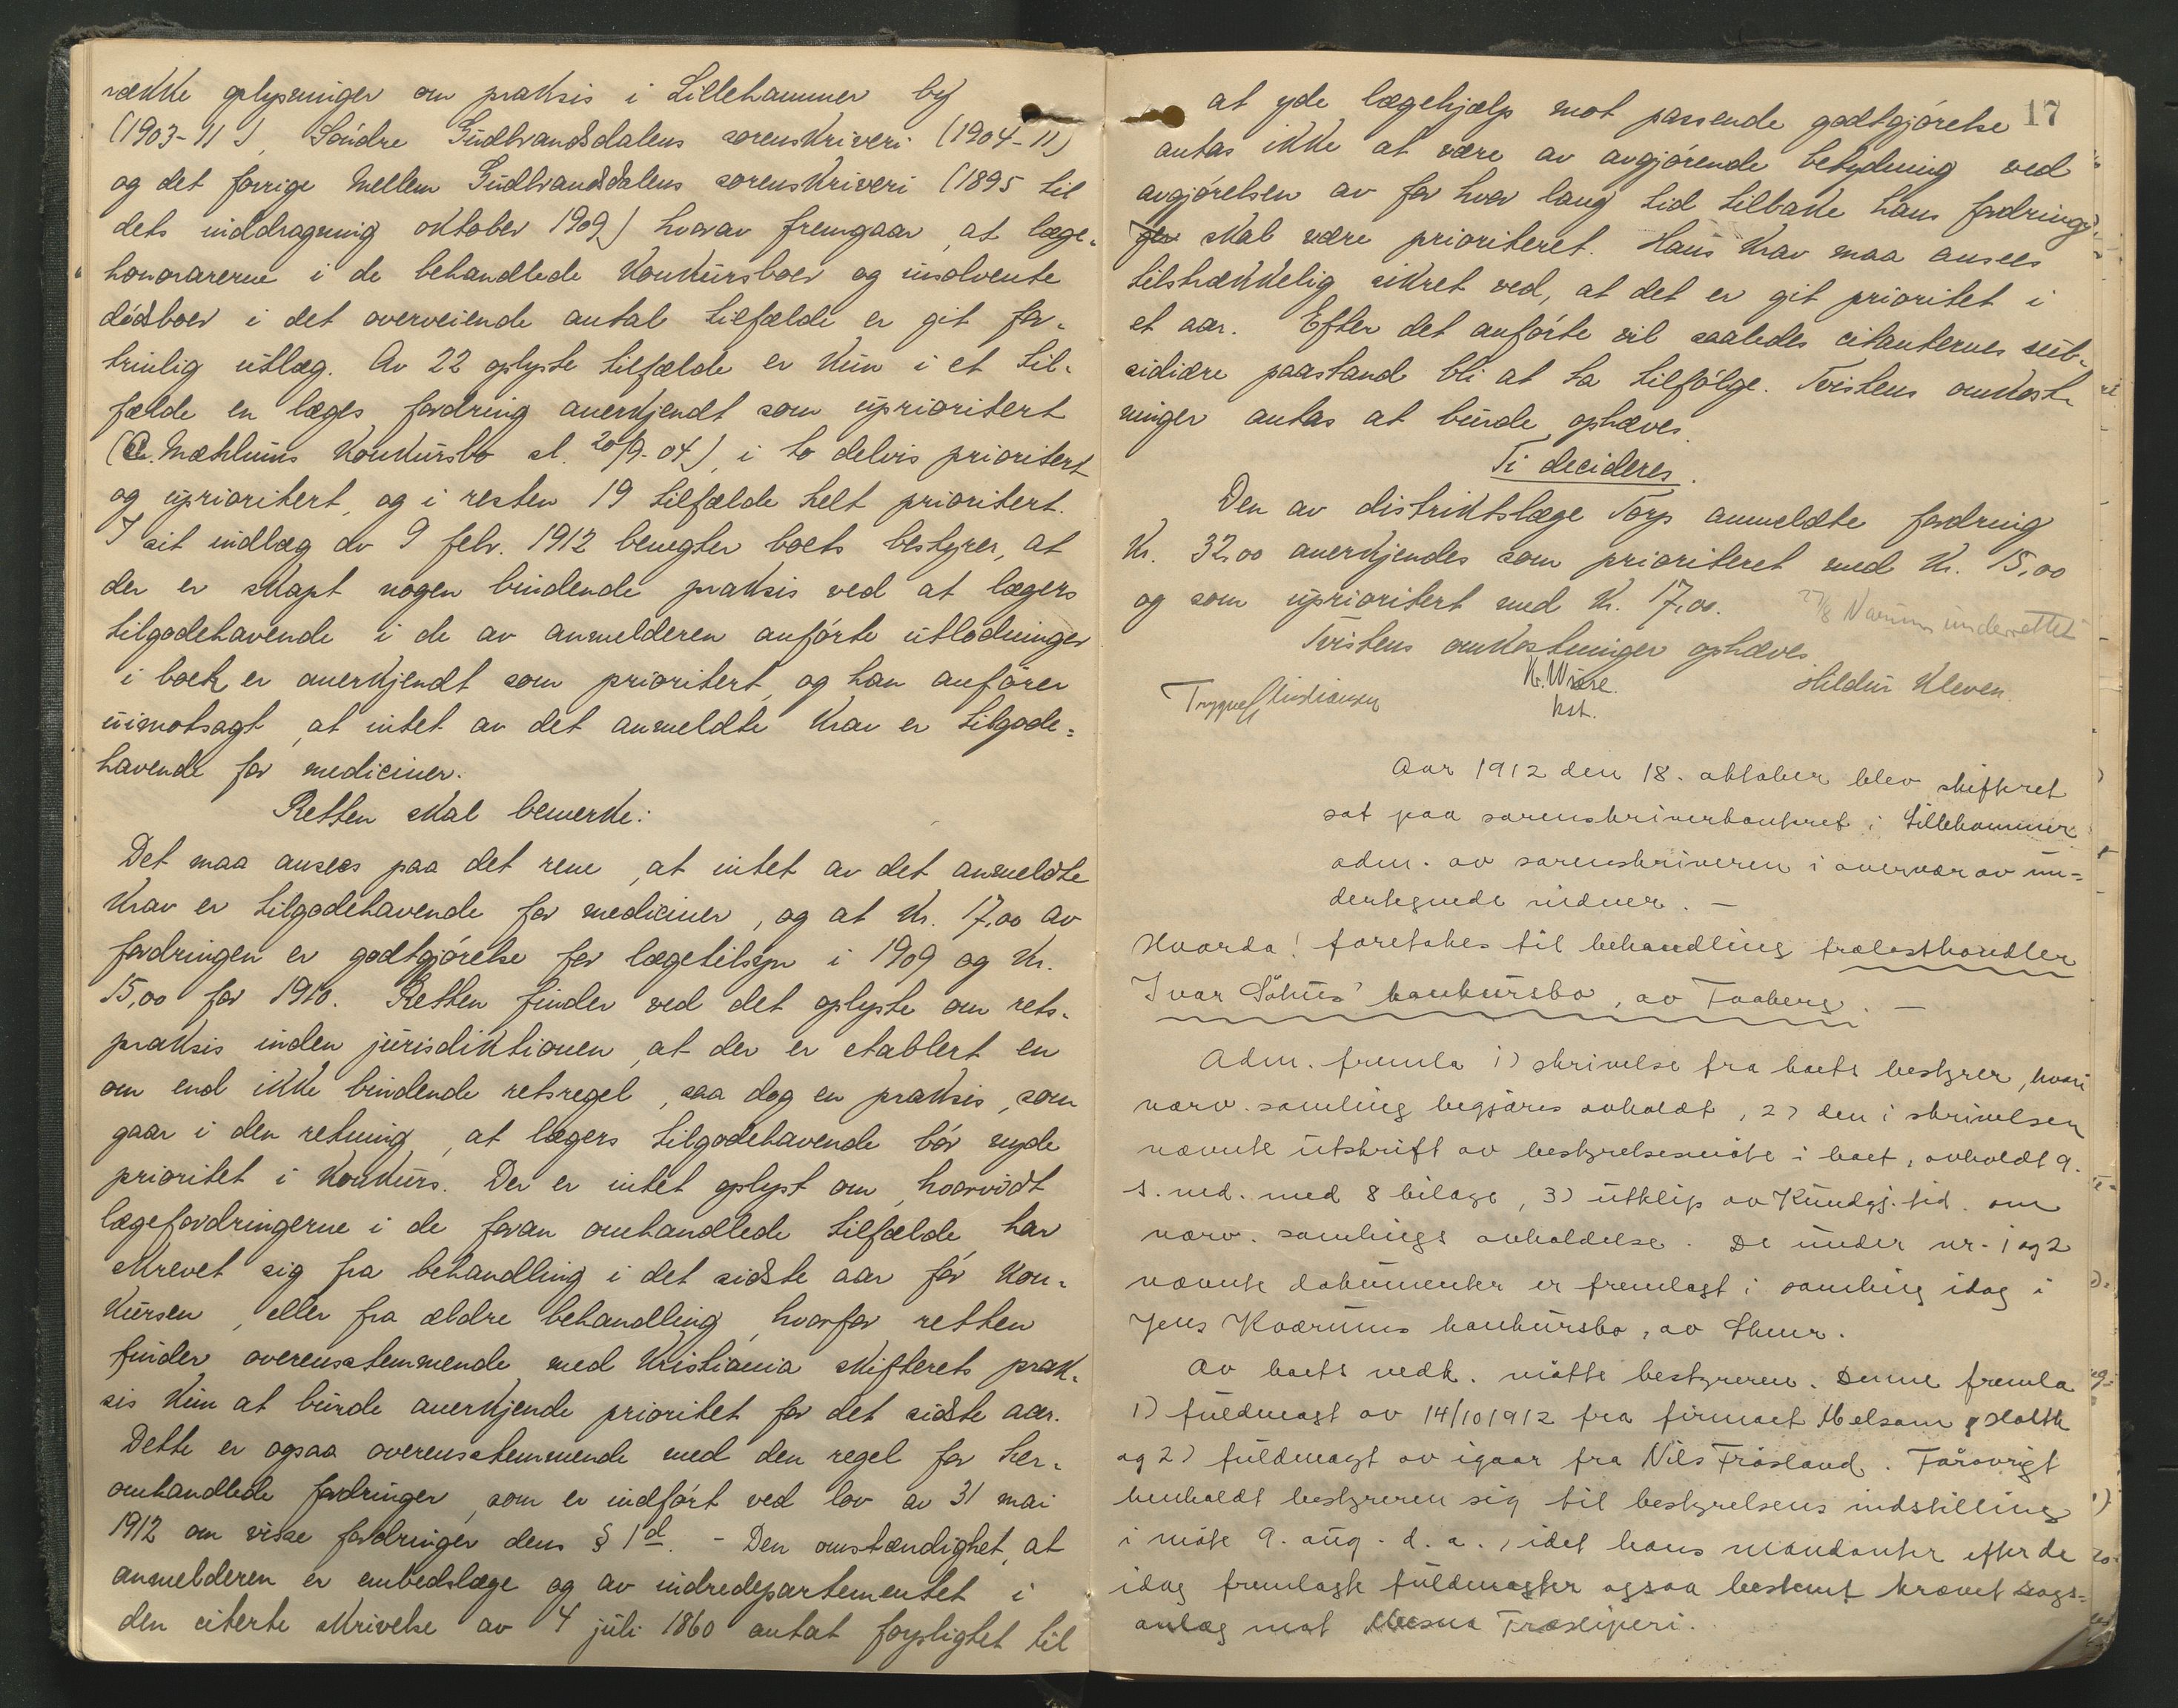 række oplysninger om praksis i Lillehammer by
(1903-11), Söndre Gudbrandsdalens sorenskriveri (1904-11)
og det forrige Mellem Gudbrandsdalens sorenskriveri (1895 til
dets inddragning oktober 1909) hvorav fremgaar, at læge-
honorarerne i de behandlede konkursboer og insolvente
dödsboer i det overveiende antal tilfælde er git for-
trinlig utlæg. Av 22 oplyste tilfælde er kun i et til-
fælde en læges fordring anerkjendt som uprioritert
(Mæhlums konkursbo sl. 20/9-04), i to delvis prioritert
og uprioritert, og i resten 19 tilfælde helt prioritert.
I sit indlæg av 9 febr. 1912 benegter boets bestyrer, at
der er skapt nogen bindende praksis ved at lægers
tilgodehavende i de av anmelderen anförte utlodninger
i boer er anerkjendt som prioritert, og han anförer
uimotsagt, at intet av det anmeldte krav er tilgode-
havende for mediciner.
Retten skal bemerke:
Det maa ansees paa det rene, at intet av det anmeldte
krav er tilgodehavende for mediciner, og at kr. 17,00 av
fordringen er godtgjörelse for lægetilsyn i 1909 og kr.
15,00 for 1910. Retten finder ved det oplyste om rets-
praksis inden jurisdiktionen, at der er etablert en
om end ikke bindende retsregel, saa dog en praksis, som
gaar i den retning, at lægers tilgodehavende bör nyde
prioritet i konkurs. Der er intet oplyst om, hvorvidt
lægefordringerne i de foran omhandlede tilfælde har
skrevet sig fra behandling i det sidste aar för kon-
kursen, eller fra ældre behandling, hvorfor retten
finder overensstemmende med Kristiania skifterets prak-
sis kun at burde anerkjende prioritet for det sidste aar.
Dette er ogsaa overensstemmende med den regel for her-
omhandlede fordringer, som er indfört ved lov av 31 mai
1912 om visse fordringer dens § 1 d. - Den omstændighet, at
anmelderen er embedslæge og av indredepartementet i
den citerte skrivelse av 4 juli 1860 antat forpligtet til
17
at yde lægehjælp mot passende godtgjörelse
antas ikke at være av avgjörende betydning ved
avgjörelsen av for hvor lang tid tilbake hans fordring
skal være prioriteret. Hans krav maa ansees
tilstrækkelig sikret ved, at det er git prioritet i
et aar. Efter det anförte vil saaledes citanternes sub-
sidiære paastand bli at ta tilfölge. Tvistens omkost-
ninger antas at burde ophæves.
Ti decideres.
Den av distriktslæge Torp anmeldte fordring
kr. 32,00 anerkjendes som prioriteret med kr. 15,00
og som uprioritert med kr. 17,00.
underrettet
Tvistens omkostninger ophæves.
Kst.
Hildur Kleven.
Trygve Kristiansen
Aar 1912 den 18. oktober blev skifteret
sat paa sorenskriverkontoret i Lillehammer
adm. av sorenskriveren i overvær av un-
dertegnede vidner. —
Hvorda! foretokes til behandling trælasthandler
Ivar Söhus' konkursbo, av Faaberg. —
Adm. fremla 1) skrivelse fra boets bestyrer, hvori
nærv. samling begjæres avholdt, 2) den i skrivelsen
nævnte utskrift av bestyrelsesmöte i boet, avholdt 9.
s. md. med 8 bilage, 3) utklip av Kundgj. tid. om
nærv. samlings avholdelse. De under nr. 1 og 2
nævnte dokumenter er fremlagt i samling idag i
Jens Kværums konkursbo, av
Av boets vedk. mötte bestyreren. Denne fremla
1) fuldmagt av 14/10 1912 fra firmaet Melsom & Holth
og 2) fuldmagt av igaar fra Nils Frösland. Forövrigt
henholdt bestyreren sig til bestyrelsens indstilling
i möte 9. aug. d. a., idet hans mandanter efter de
idag fremlagte fuldmagter ogsaa bestemt krævet sags-
anlæg mot Mesna Træsliperi.